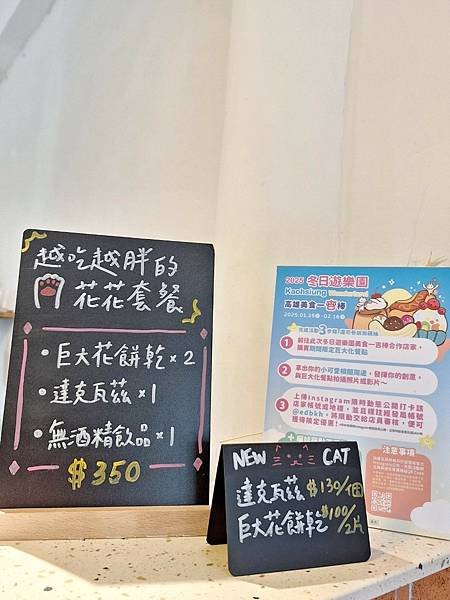 越吃越胖的
花花套餐
・巨大花餅乾×2
・達克瓦茲×1
・無酒精飲品×1
$350
NEW CAT
達克瓦茲 $130/個
巨大花餅乾 $100/2片
2025 冬日遊樂園
Kaohsiung
高雄美食一吉棒
1 前往此次冬日遊樂園美食一吉棒合作店家，
購買期間限定巨大化餐點
2 拿出你的小可愛相隨周邊，發揮你的創意，
與巨大化餐點拍攝照片或影片～
3 上傳Instagram限時動態公開打卡該
店家帳號或地標，並且標註經發局帳號
@edbkh，將限動交給店員審核，便可
獲得限定優惠！
注意事項